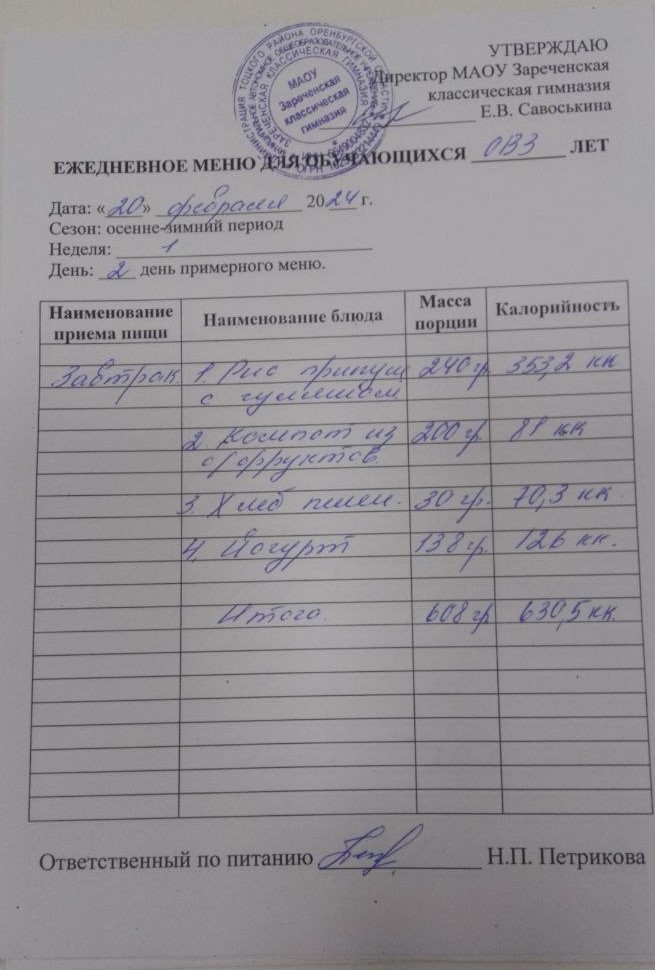 УТВЕРЖДАЮ
Директор МАОУ Зареченская
классическая гимназия
Е.В. Савоськина
МАОУ
Зареченская
классическая
гимназия
ЕЖЕДНЕВНОЕ МЕНЮ ДЛЯ ОБУЧАЮЩИХСЯ ОВЗ ЛЕТ
Дата: «20» февраля 2024 г.
Сезон: осенне-зимний период
Неделя: 1
День: 2 день примерного меню.
Наименование приема пищи Наименование блюда Масса порции Калорийность
Завтрак. 1. Рис припущ 240 гр. 353,2 кк
с гуляшом
2. Компот из 200 гр. 81 кк
с/фруктов.
3. Хлеб пшен. 30 гр. 70,3 кк.
4. Йогурт 138 гр. 126 кк.
Итого. 608 гр 630,5 кк.
Ответственный по питанию Н.П. Петрикова